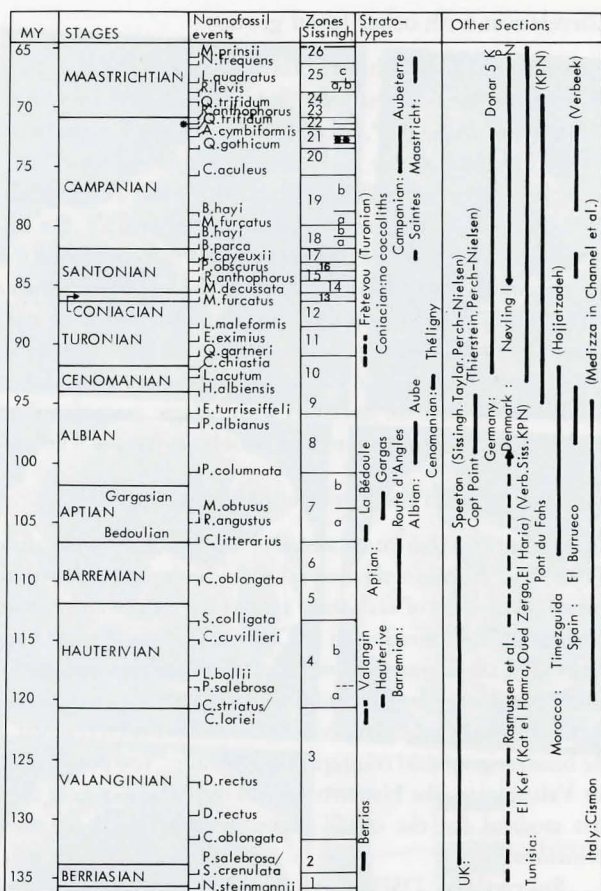 MY
STAGES
Nannofossil
events
Zones
Sissingh
Strato-
types
Other Sections
65
70
75
80
85
90
95
100
105
110
115
120
125
130
135
MAASTRICHTIAN
CAMPANIAN
SANTONIAN
CONIACIAN
TURONIAN
CENOMANIAN
ALBIAN
Gargasian
APTIAN
Bedoulian
BARREMIAN
HAUTERIVIAN
VALANGINIAN
BERRIASIAN
M.prinsii
N.frequens
L.quadratus
R.levis
Q.trifidum
R.anthophorus
Q.trifidum
A.cymbiformis
Q.gothicum
C.aculeus
B.hayi
M.furcatus
B.hayi
B.parca
L.cayeuxii
P.obscurus
R.anthophorus
M.decussata
M.furcatus
L.maleformis
E.eximius
Q.gartneri
C.chiastia
L.acutum
H.albiensis
E.turriseiffeli
P.albianus
P.columnata
M.obtusus
R.angustus
C.litterarius
C.oblongata
S.colligata
C.cuvillieri
L.bollii
P.salebrosa
C.striatus/
C.loriei
D.rectus
D.rectus
C.oblongata
P.salebrosa/
S.crenulata
N.steinmannii
26
25 c
a,b
24
23
22
21
20
19 b
a
18 b
a
17
16
15
14
13
12
11
10
9
8
7 b
a
6
5
4 b
a
3
2
1
Berrias
Valangin
Hauterive
Barremian:
Aptian:
La Bédoule
Gargas
Route d'Angles
Albian:
Aube
Cenomanian:
Théligny
Frètevou (Turonian)
Coniacian:no coccoliths
Saintes
Campanian:
Aubeterre
Maastricht:
UK:
Speeton (Sissingh.Taylor.Perch-Nielsen)
Copt Point (Thierstein.Perch-Nielsen)
Germany:
Donar 5 K
Denmark:
Nøvling I
Rasmussen et al.
Tunisia:
El Kef (Kat el Hamra,Oued Zerga,El Haria) (Verb.Siss.KPN)
Pont du Fahs
(KPN)
Morocco: Timezguida
(Hojjatzadeh)
Spain: El Burrueco
(Verbeek)
Italy:Cismon
(Medizza in Channel et al.)